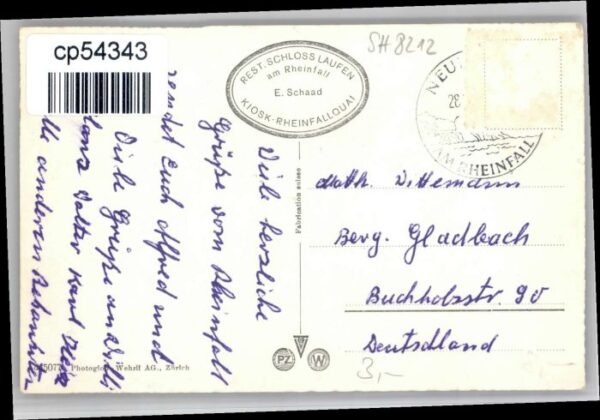 cp54343
SH 8212
REST. SCHLOSS LAUFEN
am Rheinfall
E. Schaad
KIOSK-RHEINFALLQUAI
NEU
28.
AM RHEINFALL
Viele herzliche
Grüße vom Rheinfall
sendet Euch Alfred und
Viele Grüße an Willi
Hans Walter Karl Heinz
alle anderen Bekannten
Fabrication suisse
Math. Wittemann
Berg. Gladbach
Buchholzstr 90
Deutschland
3,-
PZ W
Photoglob-Wehrli AG., Zürich